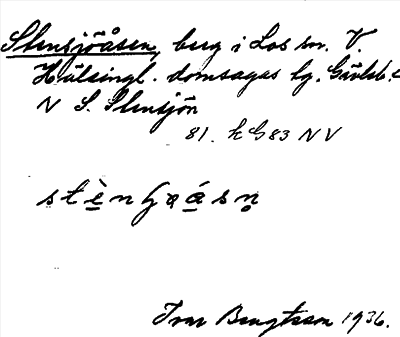 Stensjöåsen, berg i Los sn. V.
Hälsingl. domsagas tg. Gävleb. l
N S. Stensjön
81. k G 83 NV
Ivar Bengtsson 1936.